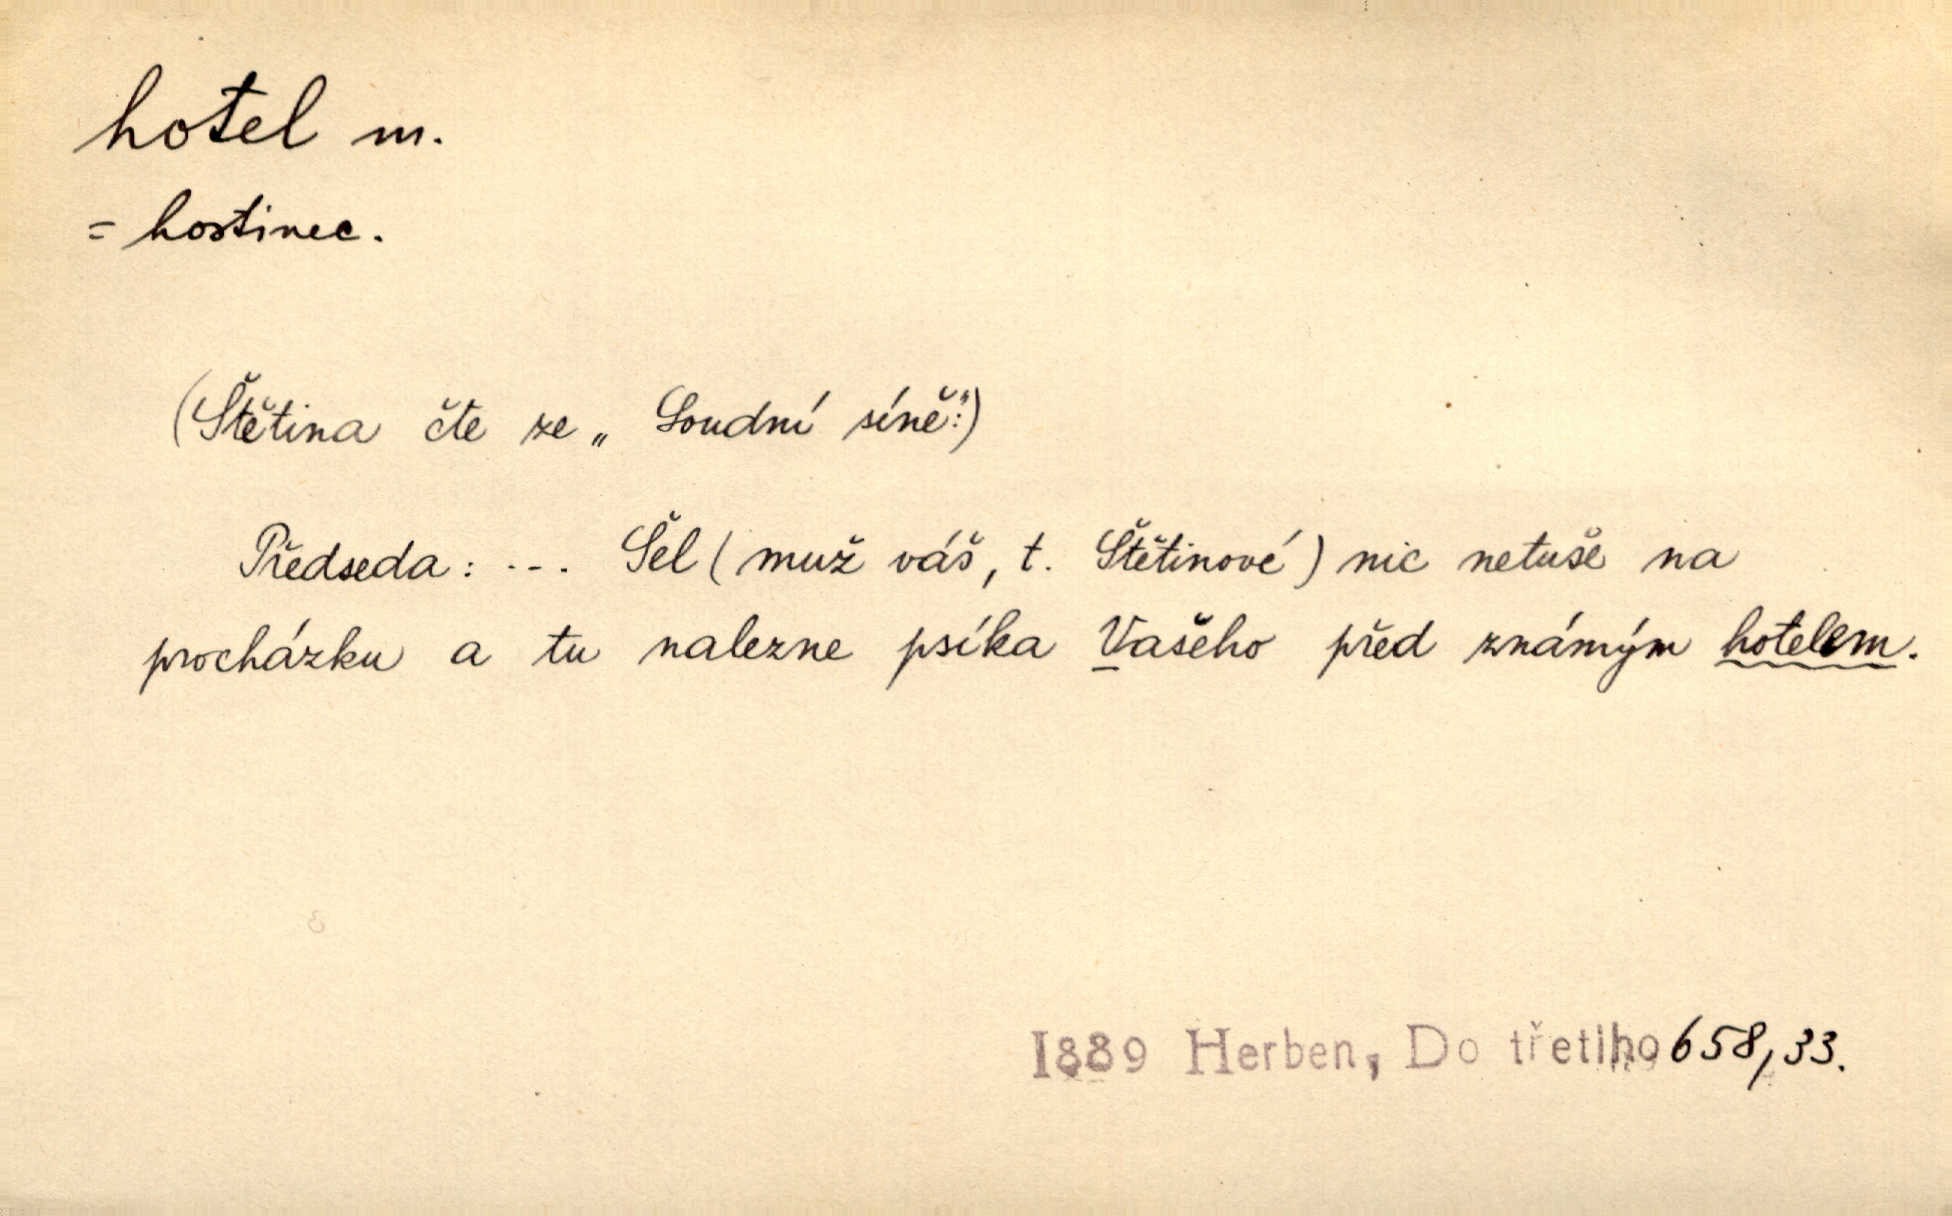 hotel m.
= hostinec.
(Štětina čte ze „Soudní síně":)
Předseda: ... Šel (muž váš, t. Štětinové) nic netuše na
procházku a tu nalezne psíka Vašeho před známým hotelem.
1889 Herben, Do třetího 658,33.